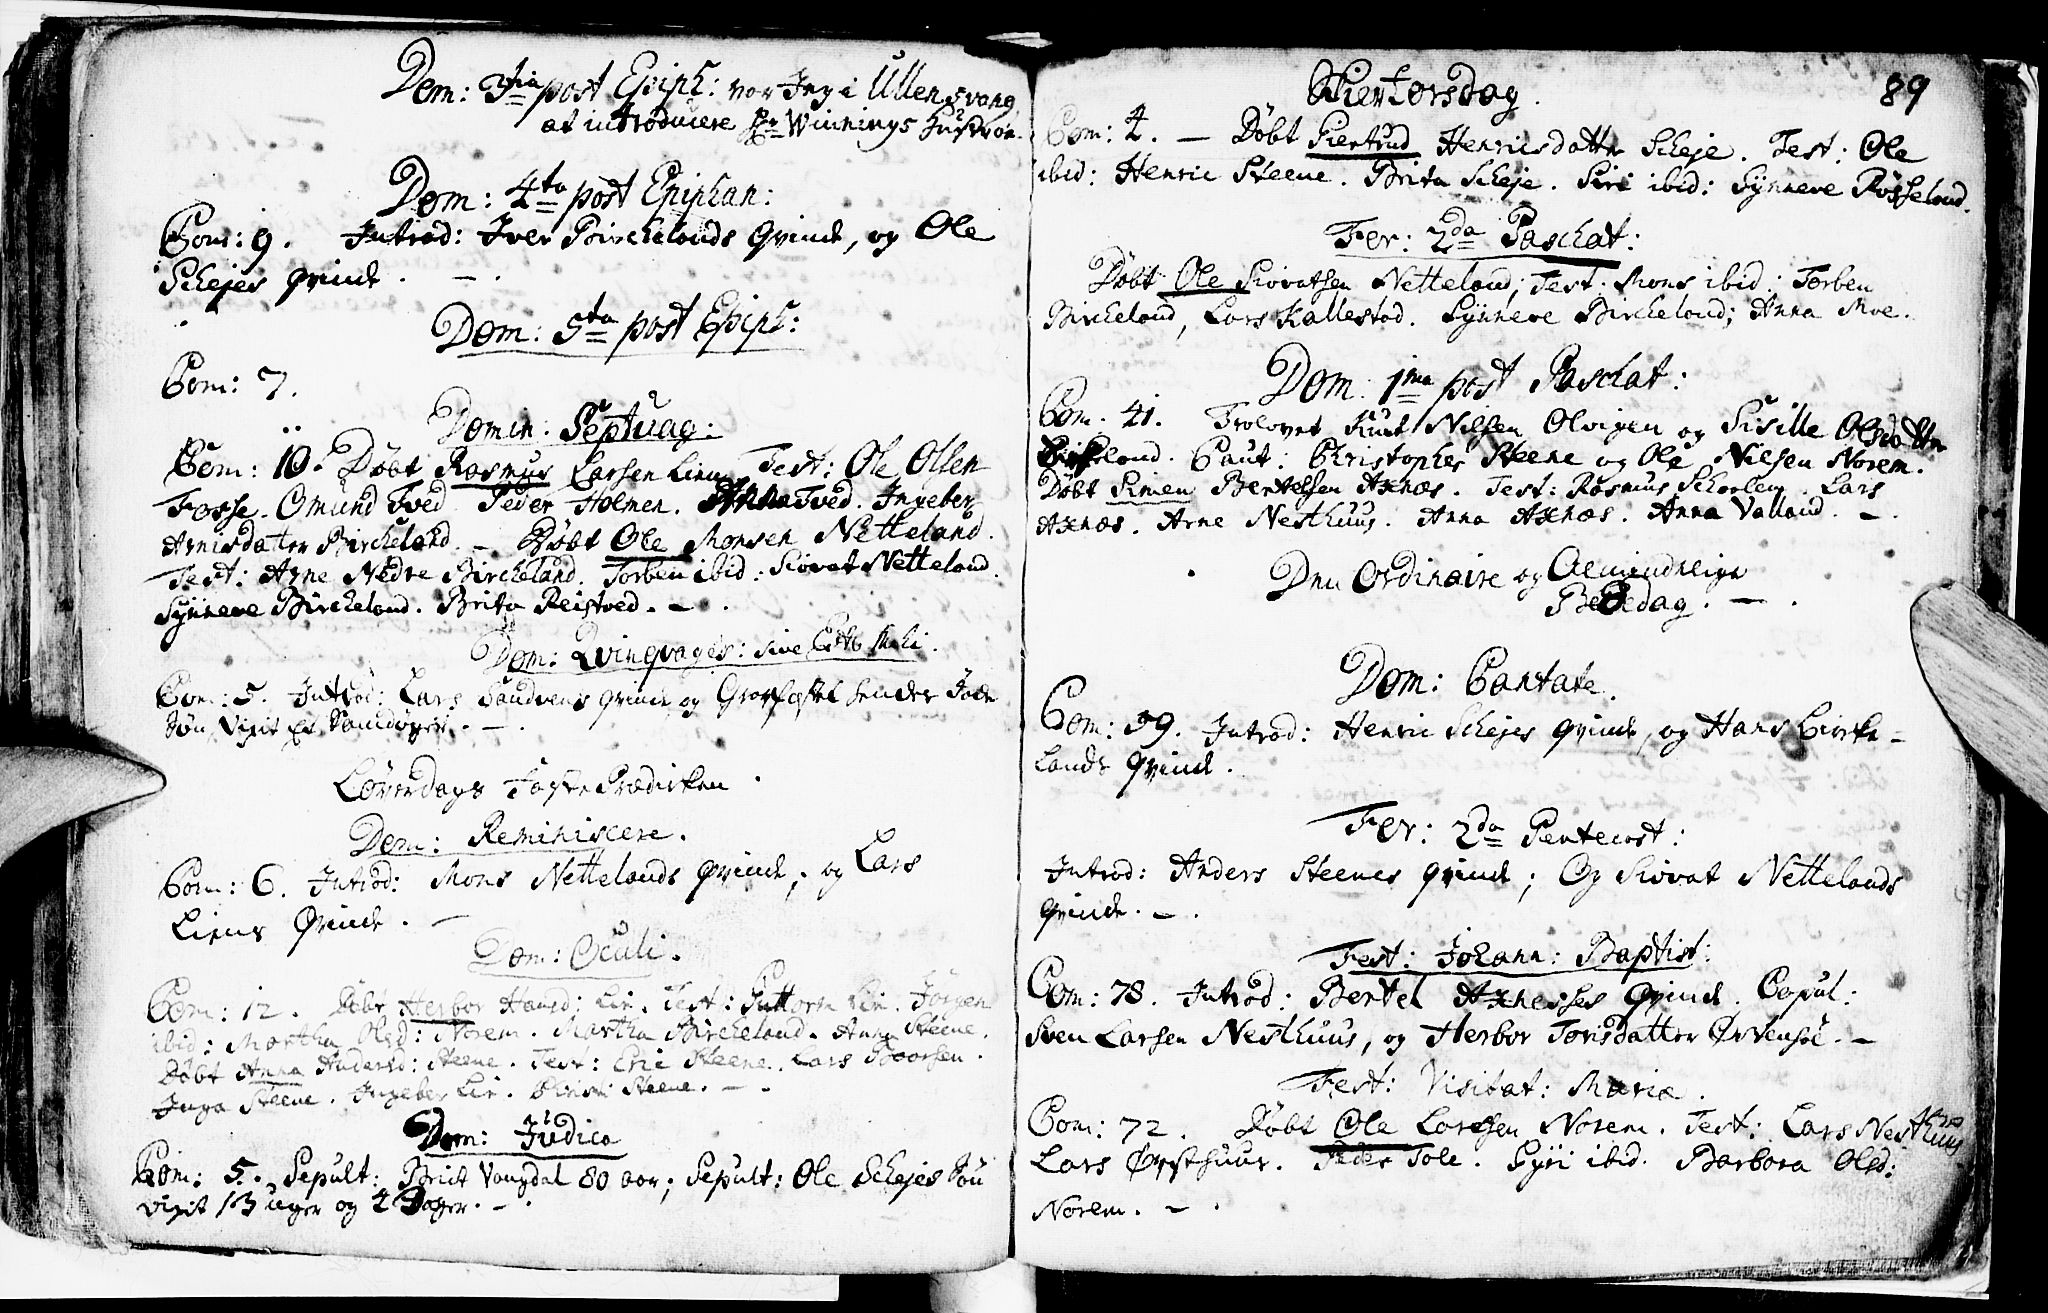 Dom: 3tia post Epiph: var Jeg i Ullensvang
at introducere Hr Winnings Hustroe.
Dom: 4ta post Epiphan:
Com: 9. Introd: Iver Birchelands Qvinde, og Ole
Schejes qvinde. —.
Dom: 5ta post Epiph:
Com: 7.
Domin: Septuag:
Com: 10. Døbt Rasmus Larsen Lien Test: Ole Olsen
Fosse. Omund Tved Peder Holmen. Anna Tved. Ingebor
Arnisdatter Bircheland. — Døbt Ole Monsen Netteland.
Test: Arne Nedre Bircheland. Torben ibid: Siovat Netteland.
Synneve Bircheland. Brita Reistved. —.
Dom: Qvinqvages: sive Esto Mihi.
Com: 5. Introd: Lars Sandvens qvinde og
Søn, vixit
Løverdags Faste Prædicken.
Dom: Reminiscere.
Com: 6. Introd: Mons Nettelands Qvinde, og Lars
Liens Qvinde. —
Dom: Oculi.
Com: 12. Døbt Herbor Hansd: Lie. Test: Guttorm Lie. Jørgen
ibid: Martha Olsd: Norem. Martha Bircheland. Anna Steene.
Døbt Anna Andersd: Steene. Test: Eric Steene. Lars
Inga Steene. Ingebor Lie. Steene. —.
Dom: Judica
Com: 5. Sepult: Brite Vangdal 80 aar; Sepult: Ole Schejes Søn
vixit 13 uger og 2 Dager. —.
89
Skiertorsdag.
Com: 4. — Døbt Giertrud Henricsdatter Scheje. Test: Ole
ibid: Henric Steene. Brita Scheje. Siri ibid: Synneve Røsseland.
Fer: 2da Paschat:
Døbt Ole Siovatsen Netteland; Test: Mons ibid: Torben
Bircheland, Lars Kallestad. Synneve Bircheland; Anna Moe.
Dom: 1ma post Paschat:
Com. 41. Trolovet Knud Nilsen Olvigen og Sisille Olsdatter
Birkeland. Caut: Christopher Steene og Ole Nielsen Norem.
Døbt Simen Bertelsen Axnæs. Test: Rasmus Lars
Axnæs. Arne Nesthuus. Anna Axnæs. Anna Valland. —.
Den Ordinaire og Almindelige
Bededag. —.
Dom: Cantate.
Com: 39. Introd: Henric Schejes qvinde, og Hans Birke-
lands qvinde.
Fer: 2da Pentecost:
Introd: Anders Steenes qvinde; Og Siovat Nettelands
qvinde. —.
Fest: Johann: Baptist:
Com: 78. Introd: Bertel Axnesses Qvinde. Copul:
Sven Larsen Nesthuus, og Herbor Torisdatter Østensøe. —
Fest: Visitat: Mariæ.
Com: 72. Døbt Ole Larsen Norem. Test: Lars Nesthuus
Lars Øysthuus. Peder Tole. Syri ibid. Barbora Olsd:
Norem. —.